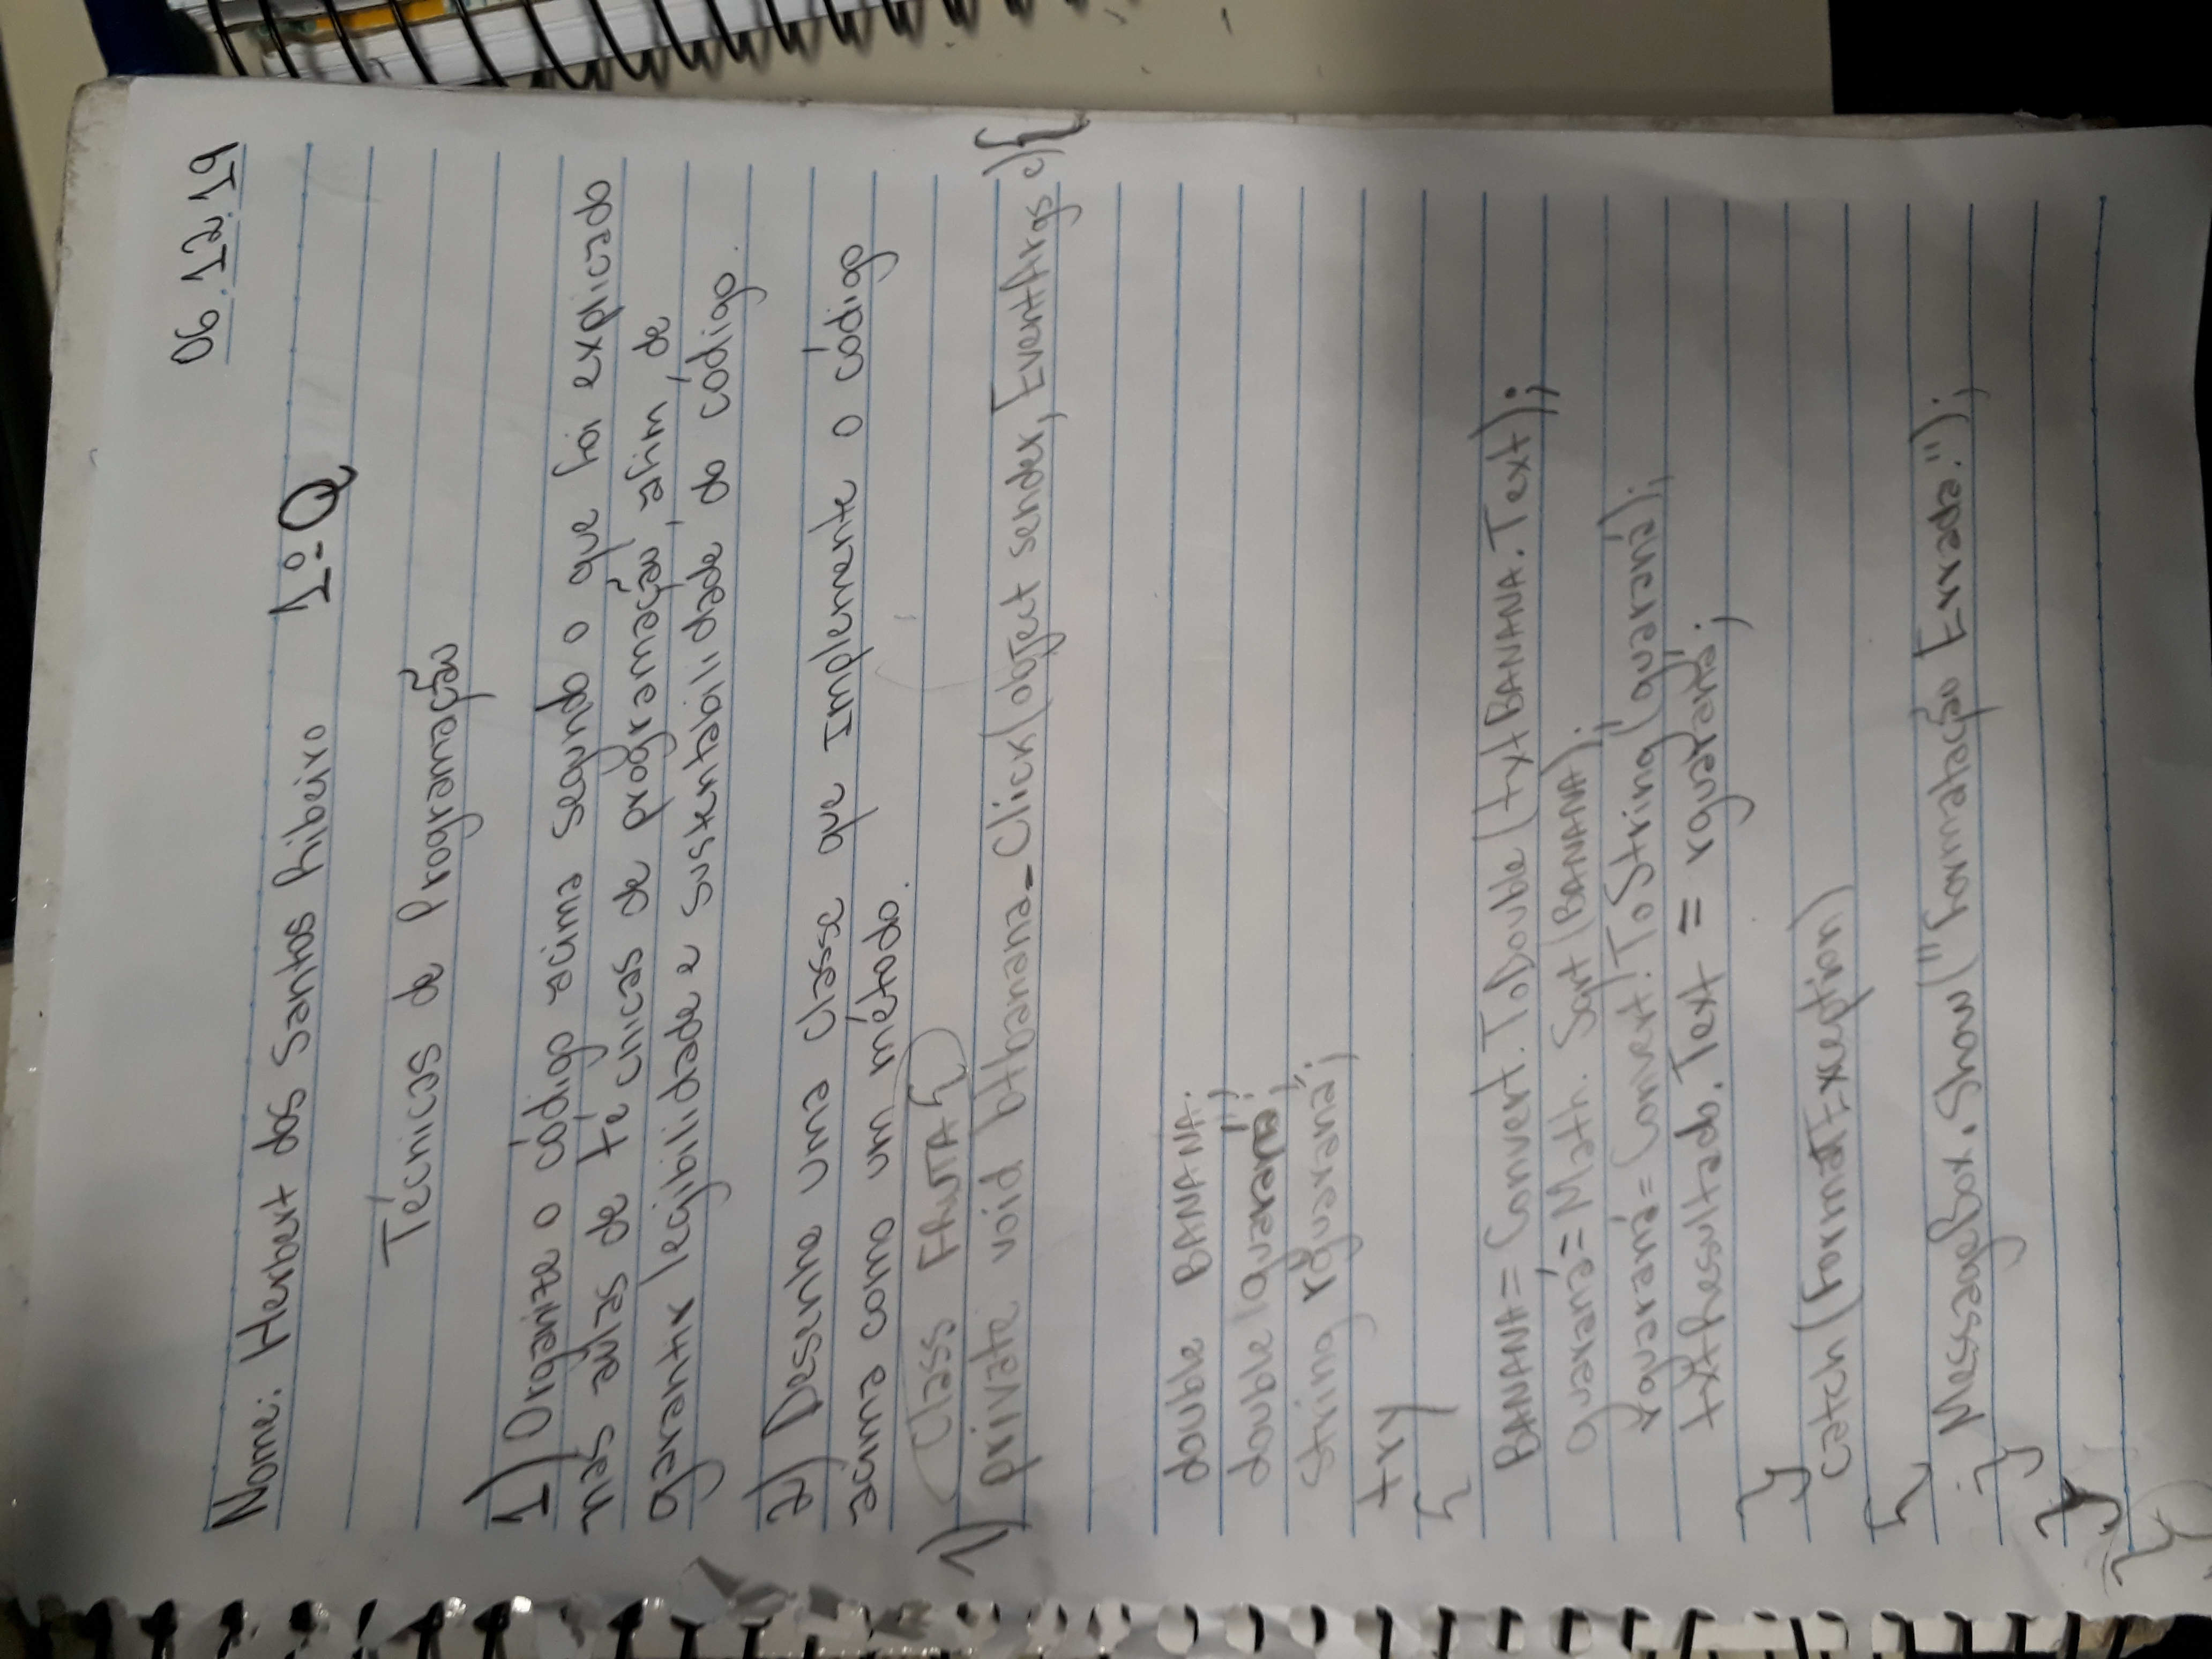 06.12.19
Nome: Herbert dos Santos Ribeiro 1º Q
Técnicas de Programação
1) Organize o código acima segundo o que foi explicado
nas aulas de técnicas de programação, afim, de
garantir legibilidade e sustentabilidade do código.
2) Desenhe uma classe que Implemente o código
acima como um método.
Class FRUTA {
1) private void btbanana_Click(object sender, EventArgs e){
double BANANA;
double guaraná;
string rguaraná;
try
{
BANANA = Convert.ToDouble(txtBANANA.Text);
guaraná = Math.Sqrt(BANANA);
rguaraná = Convert.ToString(guaraná);
txtResultado.Text = rguaraná;
}
catch(FormatException)
{
MessageBox.Show("Formatação Errada.");
}
}
}